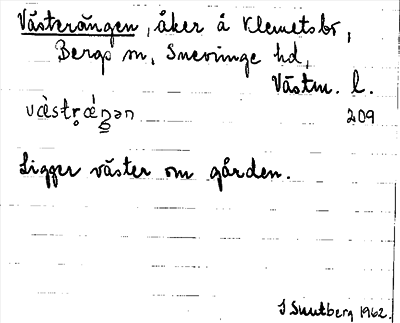 Västerängen, åker å Klemetsbo,
Bergs sn, Snevringe hd,
Västm. l.
væ̀str̥ǽŋən 209
Ligger väster om gården.
1962.